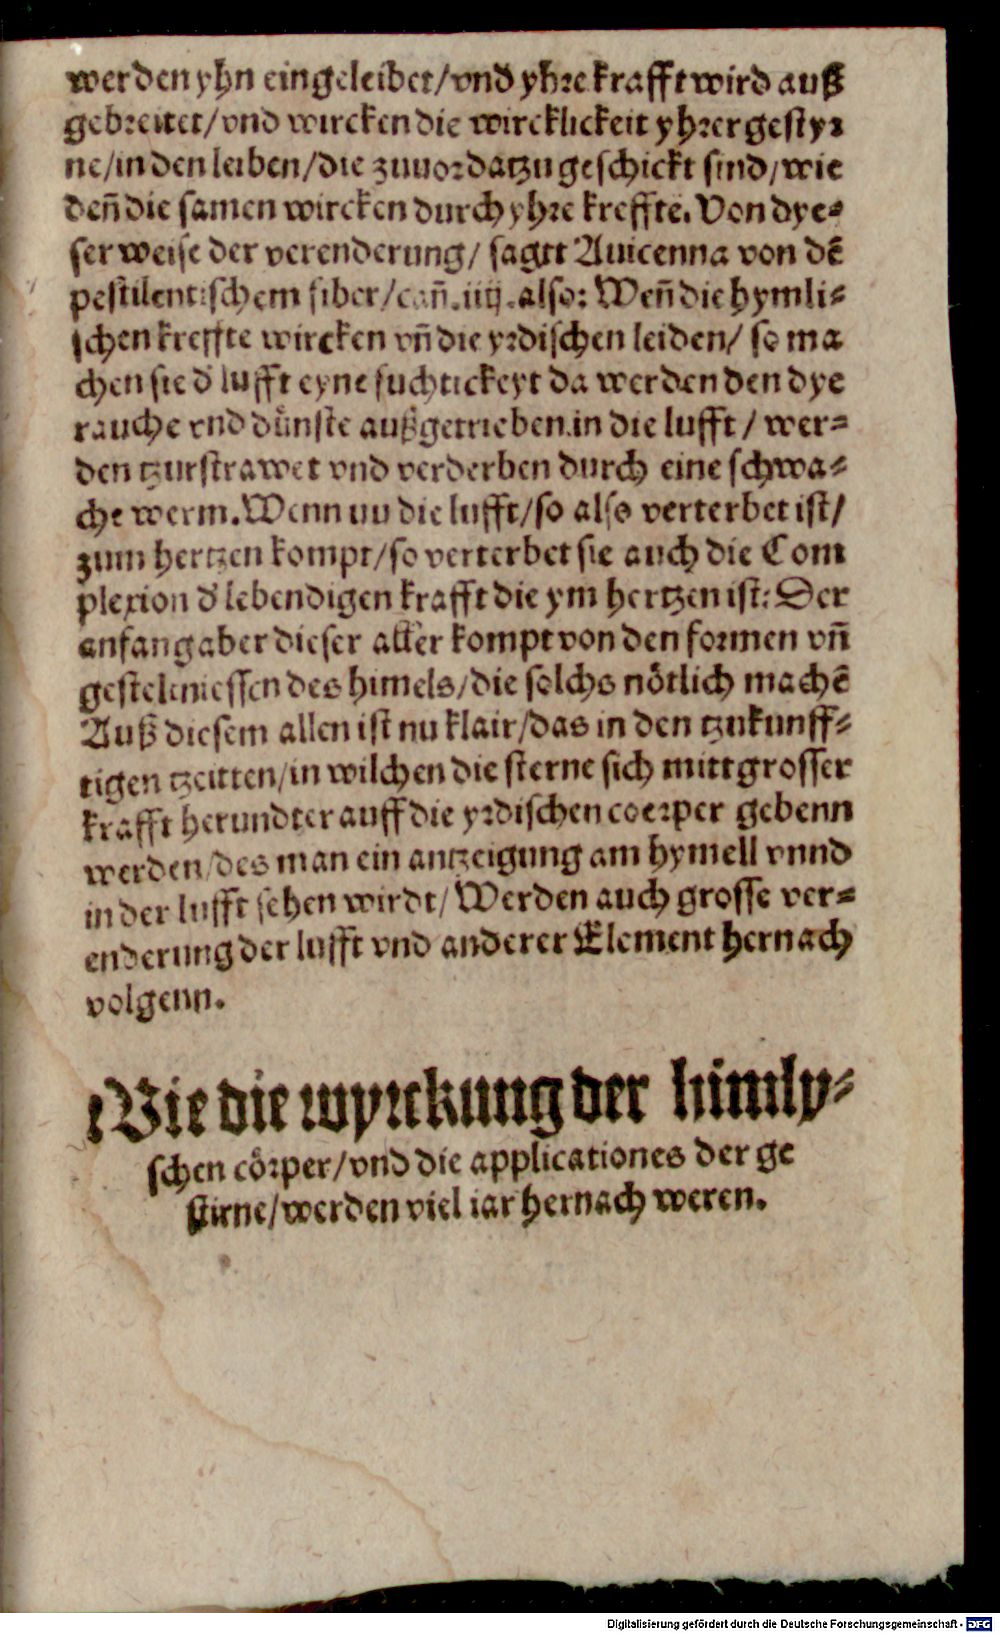 werden yhn eingeleibet/vnd yhre krafft wird auß
gebreitet/vnd wircken die wircklickeit yhrer gestyr
ne/in den leiben/die zuuor datzu geschickt sind/wie
deñ die samen wircken durch yhre kreffte. Von dye-
ser weise der verenderung/ sagtt Auicenna von dē
pestilentischem fiber/cañ.iiij.also: Weñ die hymli-
schen kreffte wircken vñ die yrdischen leiden/ so ma
chen sie d' lufft eyne fuchtickeyt da werden den dye
rauche vnd dünste außgetrieben.in die lufft / wer-
den tzurstrawet vnd verderben durch eine schwa-
che werm. Wenn nu die lufft/so also verterbet ist/
zum hertzen kompt/so verterbet sie auch die Com
plexion d' lebendigen krafft die ym hertzen ist: Der
anfang aber dieser aller kompt von den formen vñ
gestelcniessen des himels/die solchs nötlich machē
Auß diesem allen ist nu klair/das in den tzukunff-
tigen tzeitten/in wilchen die sterne sich mitt grosser
krafft herundter auff die yrdischen coerper gebenn
werden/des man ein antzeigung am hymell vnnd
in der lufft sehen wirdt/ Werden auch grosse ver-
enderung der lufft vnd anderer Element hernach
volgenn.
Wie die wyrckung der himly-
schen cörper/vnd die applicationes der ge
stirne/werden viel iar hernach weren.
Digitalisierung gefördert durch die Deutsche Forschungsgemeinschaft - DFG